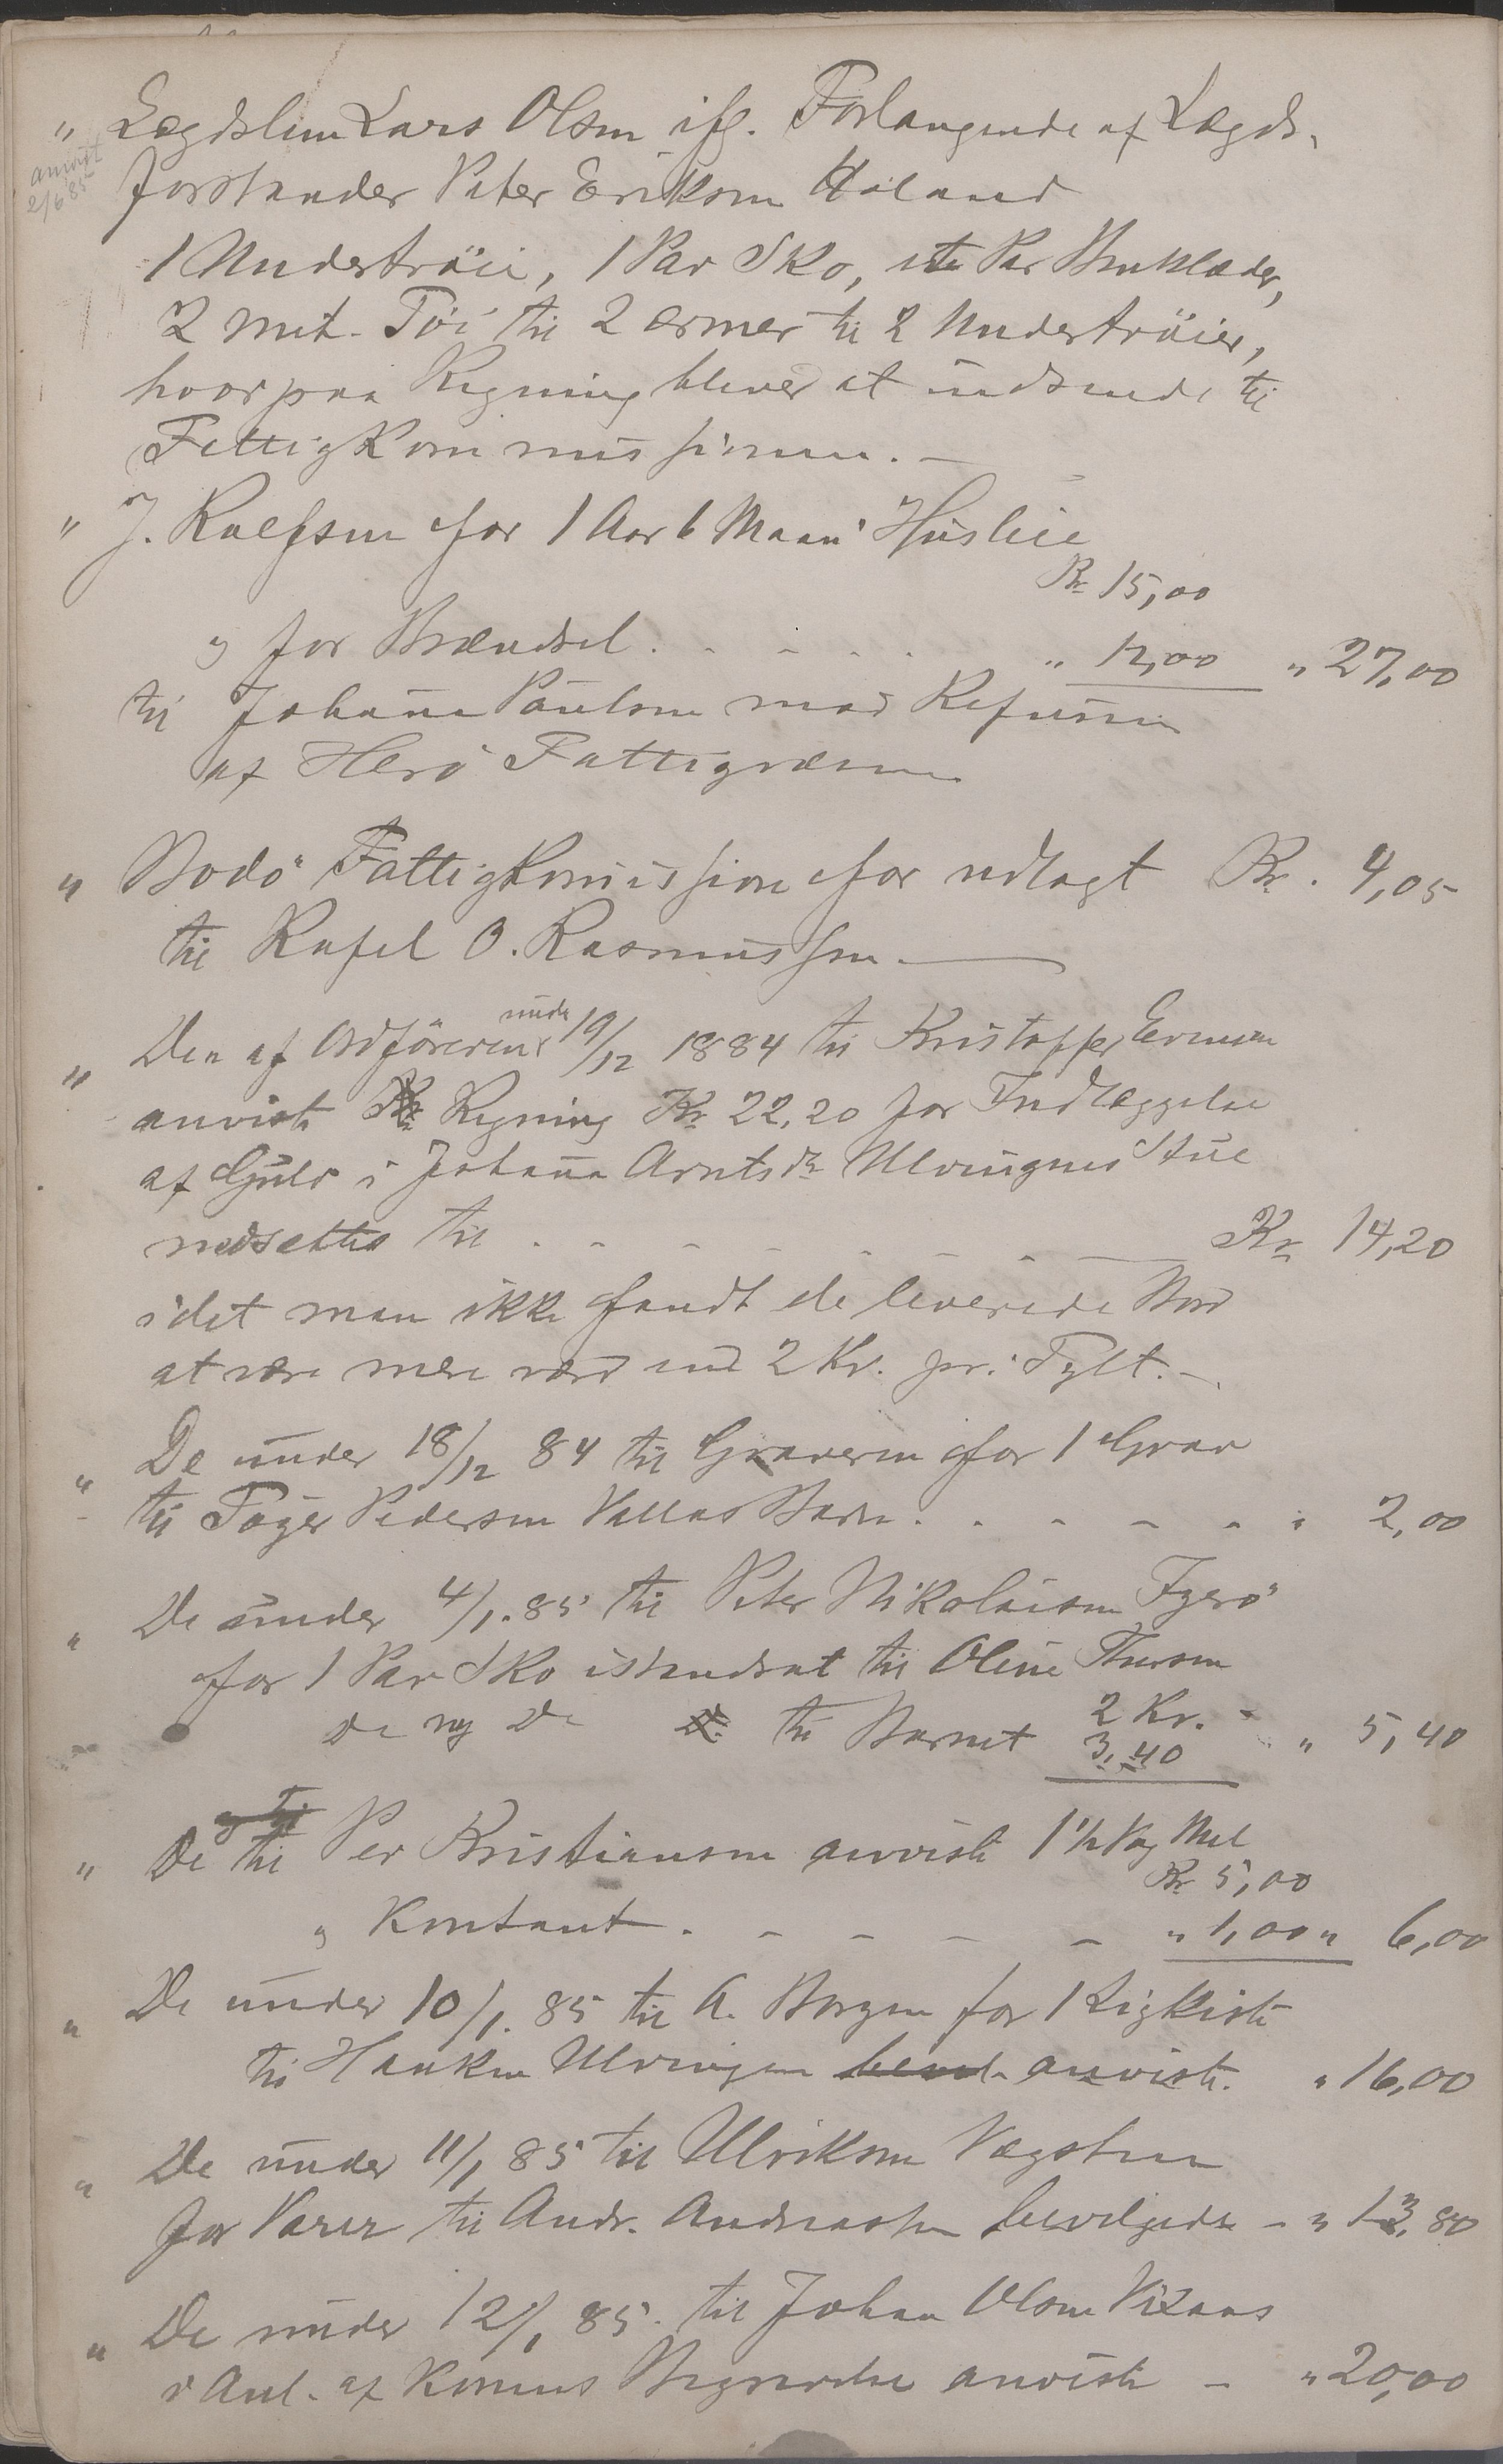 " Lægdslem Lars Olsen ifl. Forlangende af Lægds-
anvist
2/6 85
forstander Peter Eriksen Höland
1 Undertröie, 1 Par Sko, et Par Benklæder,
2 met. Töi til 2 ærmer til 2 Undertröier,
hvorpaa Regning bliver at indsende til
Fattigkommissionen. —
" J. Roelfsen for 1 Aar 6 Maan' Husleie
Kr 15,00
og for Brændsel . . . . . " 12,00 " 27,00
til Johanna Paulsen mod Refusion
af Herö Fattigvæsen
" Bodö Fattigkomission for udlagt Kr. 4,05
til Rafel O. Rasmussen. —
" Den af Ordföreren under 19/12 1884 til Kristoffer Evensen
anviste Kr Regning Kr 22,20 for Indlæggelse
af Gulv i Johanna Arntsdr Ulvingnes Stue
nedsættes til . . . . . . . Kr 14,20
idet man ikke fandt de leverede Bord
at være mere værd end 2 Kr. pr. Tylt. —
" De under 18/12 84 til Graveren for 1 Grav
til Toger Pedersen Vallas Barn . . . . . " 2,00
" De under 4/1. 85 til Peter Nikolaisen Tyerö
for 1 Par Sko istandsat til Oline Thursen
2 Kr. -
De ny De D. til Barnet 3,40 " 5,40
og til
" De til Per Kristiansen anviste 1 1/2 Vog Mel
Kr 5,00
og Kontant . - - - - " 1,00 " 6,00
" De under 10/1. 85 til A. Borgen for 1 Ligkiste
til Haakon Ulvingen bevil. anviste. " 16,00
" De under 11/1 85 til Ulriksen Vægsten
for Varer til Andr. Andreassen bevilgede - " 13,80
" De under 12/1 85. til Johan Olsen Vikaas
i Anl. af Konens Begravelse anviste - " 20,00